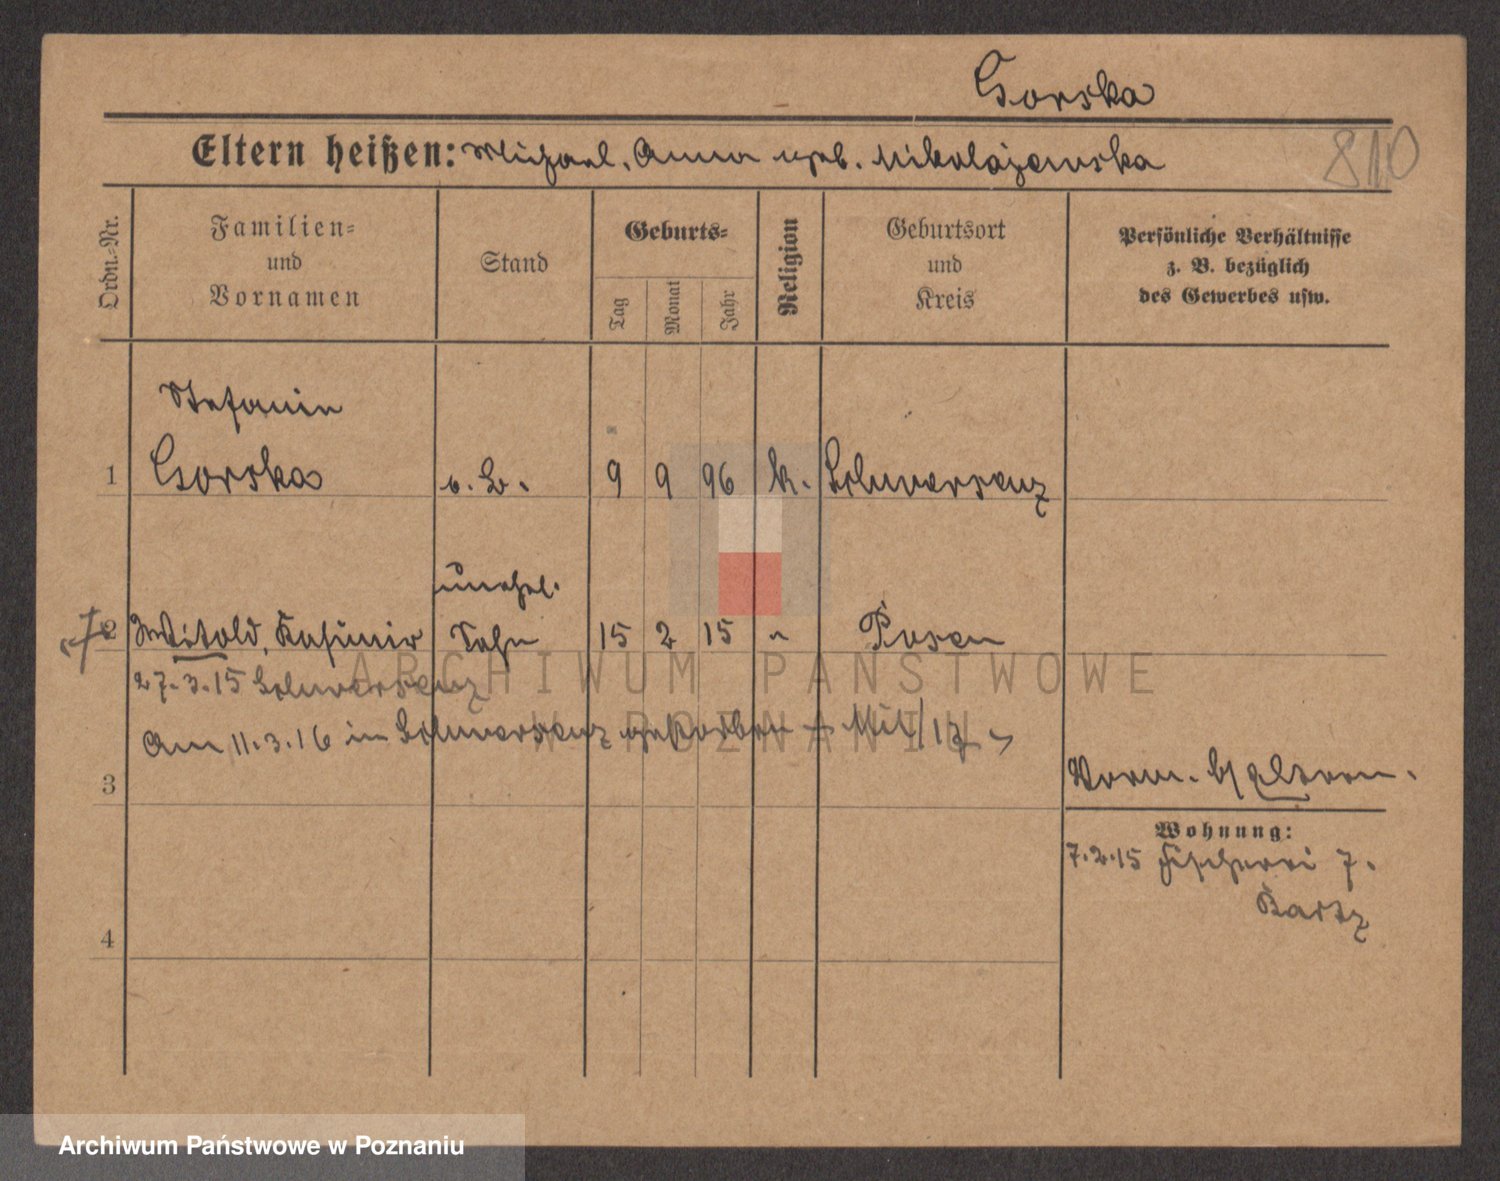 Gorska
Eltern heißen: Michael, Anna geb. Mikolajewska
810
Ordn.-Nr.
Familien-
und
Vornamen
Stand
Geburts-
Tag
Monat
Jahr
Religion
Geburtsort
und
Kreis
Persönliche Verhältnisse
z. B. bezüglich
des Gewerbes usw.
Stefanie
1 Gorska o. G. 9 9 96 k. Schwersenz
unehel.
2 Witold, Kasimir Sohn 15 2 15 " Posen
27.3.15 Schwersenz
Am 11.3.16 in Schwersenz gestorben
3
Vorm. b/ Eltern.
Wohnung:
7.2.15 Fischerei 7.
Bartz
4
ARCHIWUM PAŃSTWOWE
W POZNANIU
Archiwum Państwowe w Poznaniu